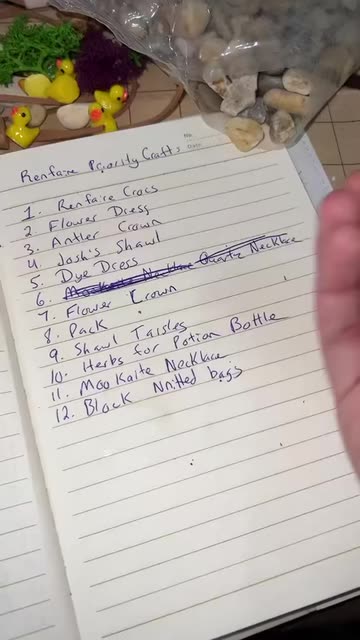 Renfaire Priority Crafts
1. Renfaire Crocs
2 Flower Dress
3. Antler Crown
4. Josh's Shawl
5. Dye Dress
6. Mookaite Necklace Quartz Necklace
7. Flower Crown
8. Pack
9. Shawl Tassles
10. Herbs for Potion Bottle
11. Mookaite Necklace
12. Black Knitted bags